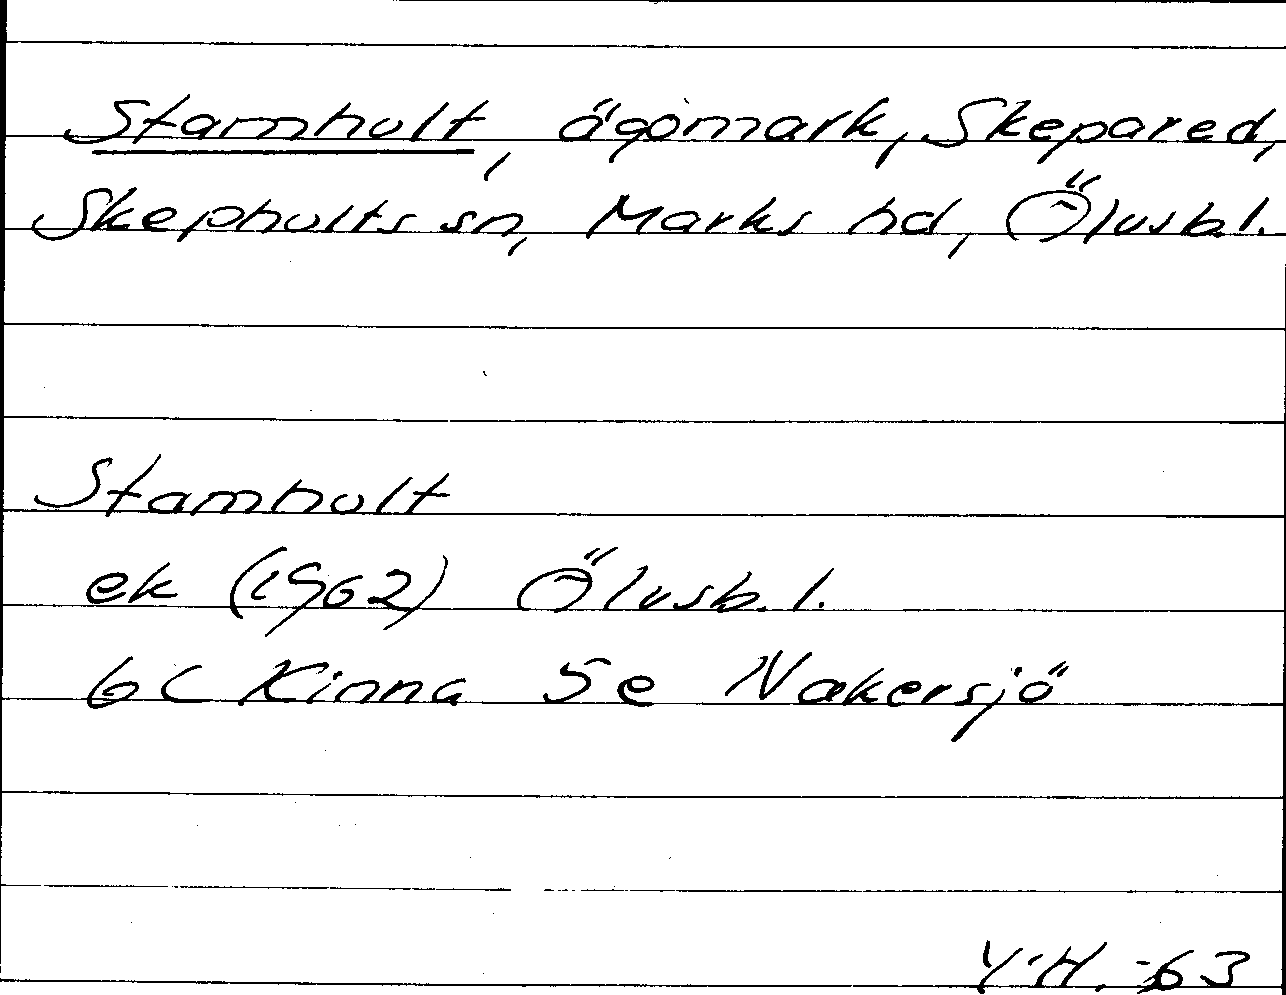 Stamhult, ägomark, Skepared,
Skephults sn, Marks hd, Älvsb.l.
Stamhult
ek (1962) Älvsb.l.
6C Kinna 5e Nakersjö
Y.H. -63